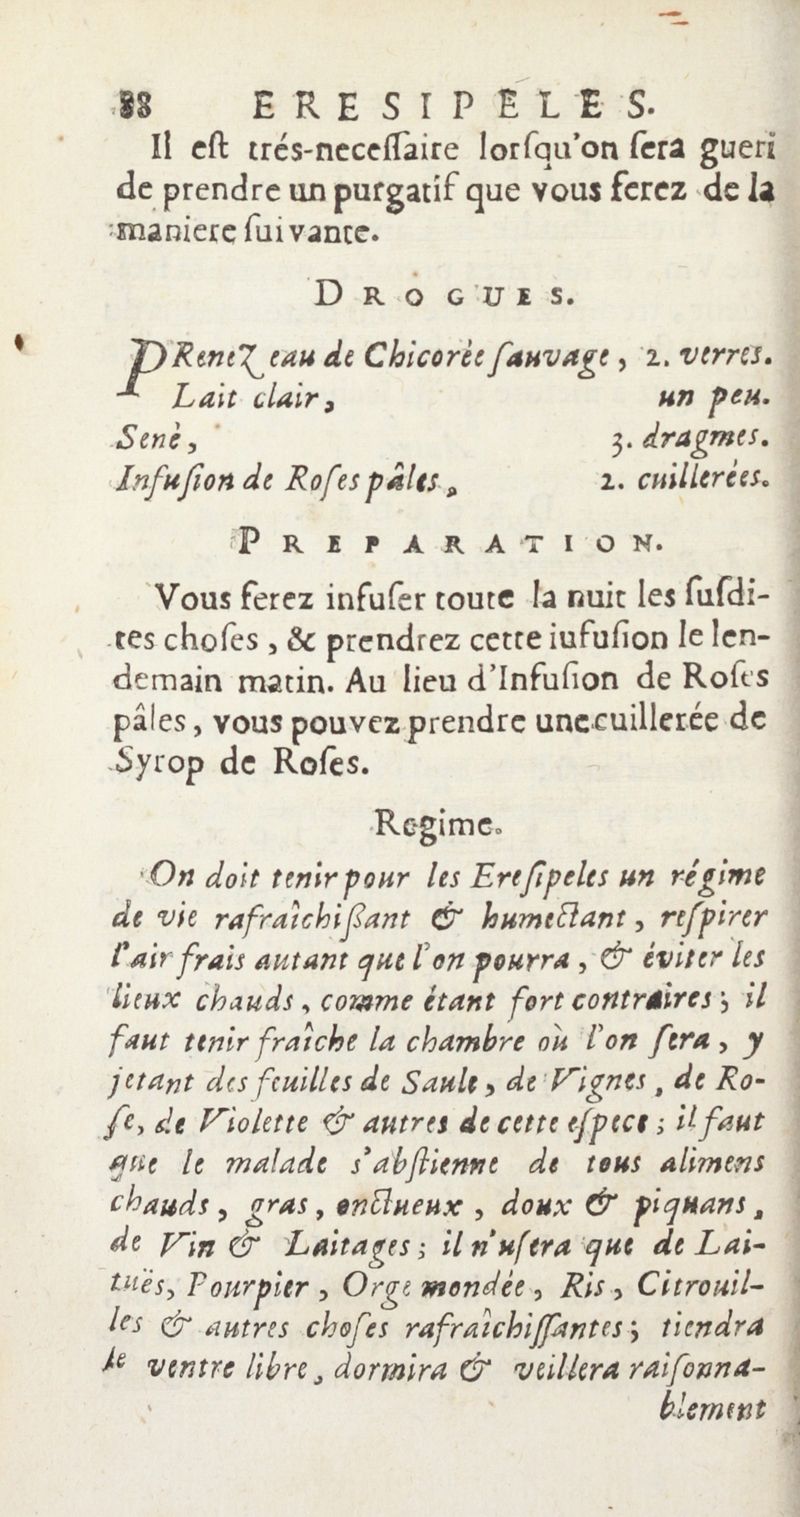 88 ERESIPELES.
Il eſt trés-neceſſaire lorſqu'on ſera gueri
de prendre un purgatif que vous ferez de la
maniere ſuivante.
DROGUES.
PRenez eau de Chicorée ſauvage, 2. verres.
Lait clair, un peu.
Sené, 3. dragmes.
Infuſion de Roſes pâles, 2. cuillerées.
PREPARATION.
Vous ferez infuſer toute la nuit les ſuſdi-
tes choſes, & prendrez cette iufuſion le len-
demain matin. Au lieu d'Infuſion de Roſes
pâles, vous pouvez prendre une cuillerée de
Syrop de Roſes.
Regime.
On doit tenir pour les Ereſipeles un régime
de vie rafraîchiſſant & humectant, reſpirer
l'air frais autant que l'on pourra, & éviter les
lieux chauds, comme étant fort contraires; il
faut tenir fraîche la chambre où l'on ſera, y
jetant des feuilles de Saule, de Vignes, de Ro-
ſe, de Violette & autres de cette eſpece; il faut
que le malade s'abſtienne de tous alimens
chauds, gras, onctueux, doux & piquans,
de Vin & Laitages; il n'uſera que de Lai-
tuës, Pourpier, Orge mondée, Ris, Citrouil-
les & autres choſes rafraîchiſſantes; tiendra
le ventre libre, dormira & veillera raiſonna-
blement